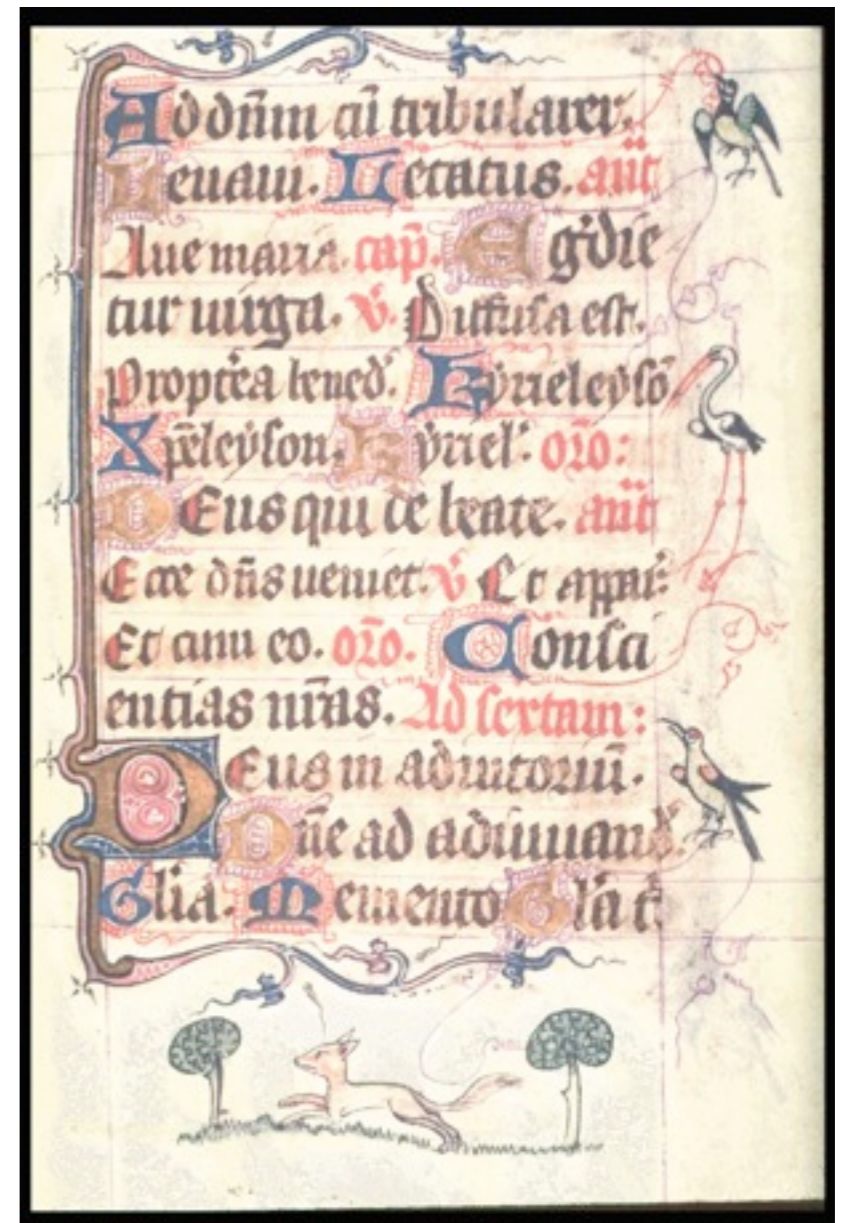 Ad dn̄m cū tribularer.
Leuaui. Letatus. an̄t
Aue maria. cap̄. Egr̄die
tur uirga. v̄. Diffusa est.
Propt̄ea bened̄. Kyrieleysō
Xp̄eleyson. Kyriel̄. or̄o:
DEus qui de beate. an̄t
Ecce dn̄s ueniet. v̄ Et appar̄:
Et cum eo. or̄o. Consci
entias nr̄as. Ad sextam:
DEus in adiutoriū.
Dn̄e ad adiuuand̄.
Glīa. Memento Glā t̄